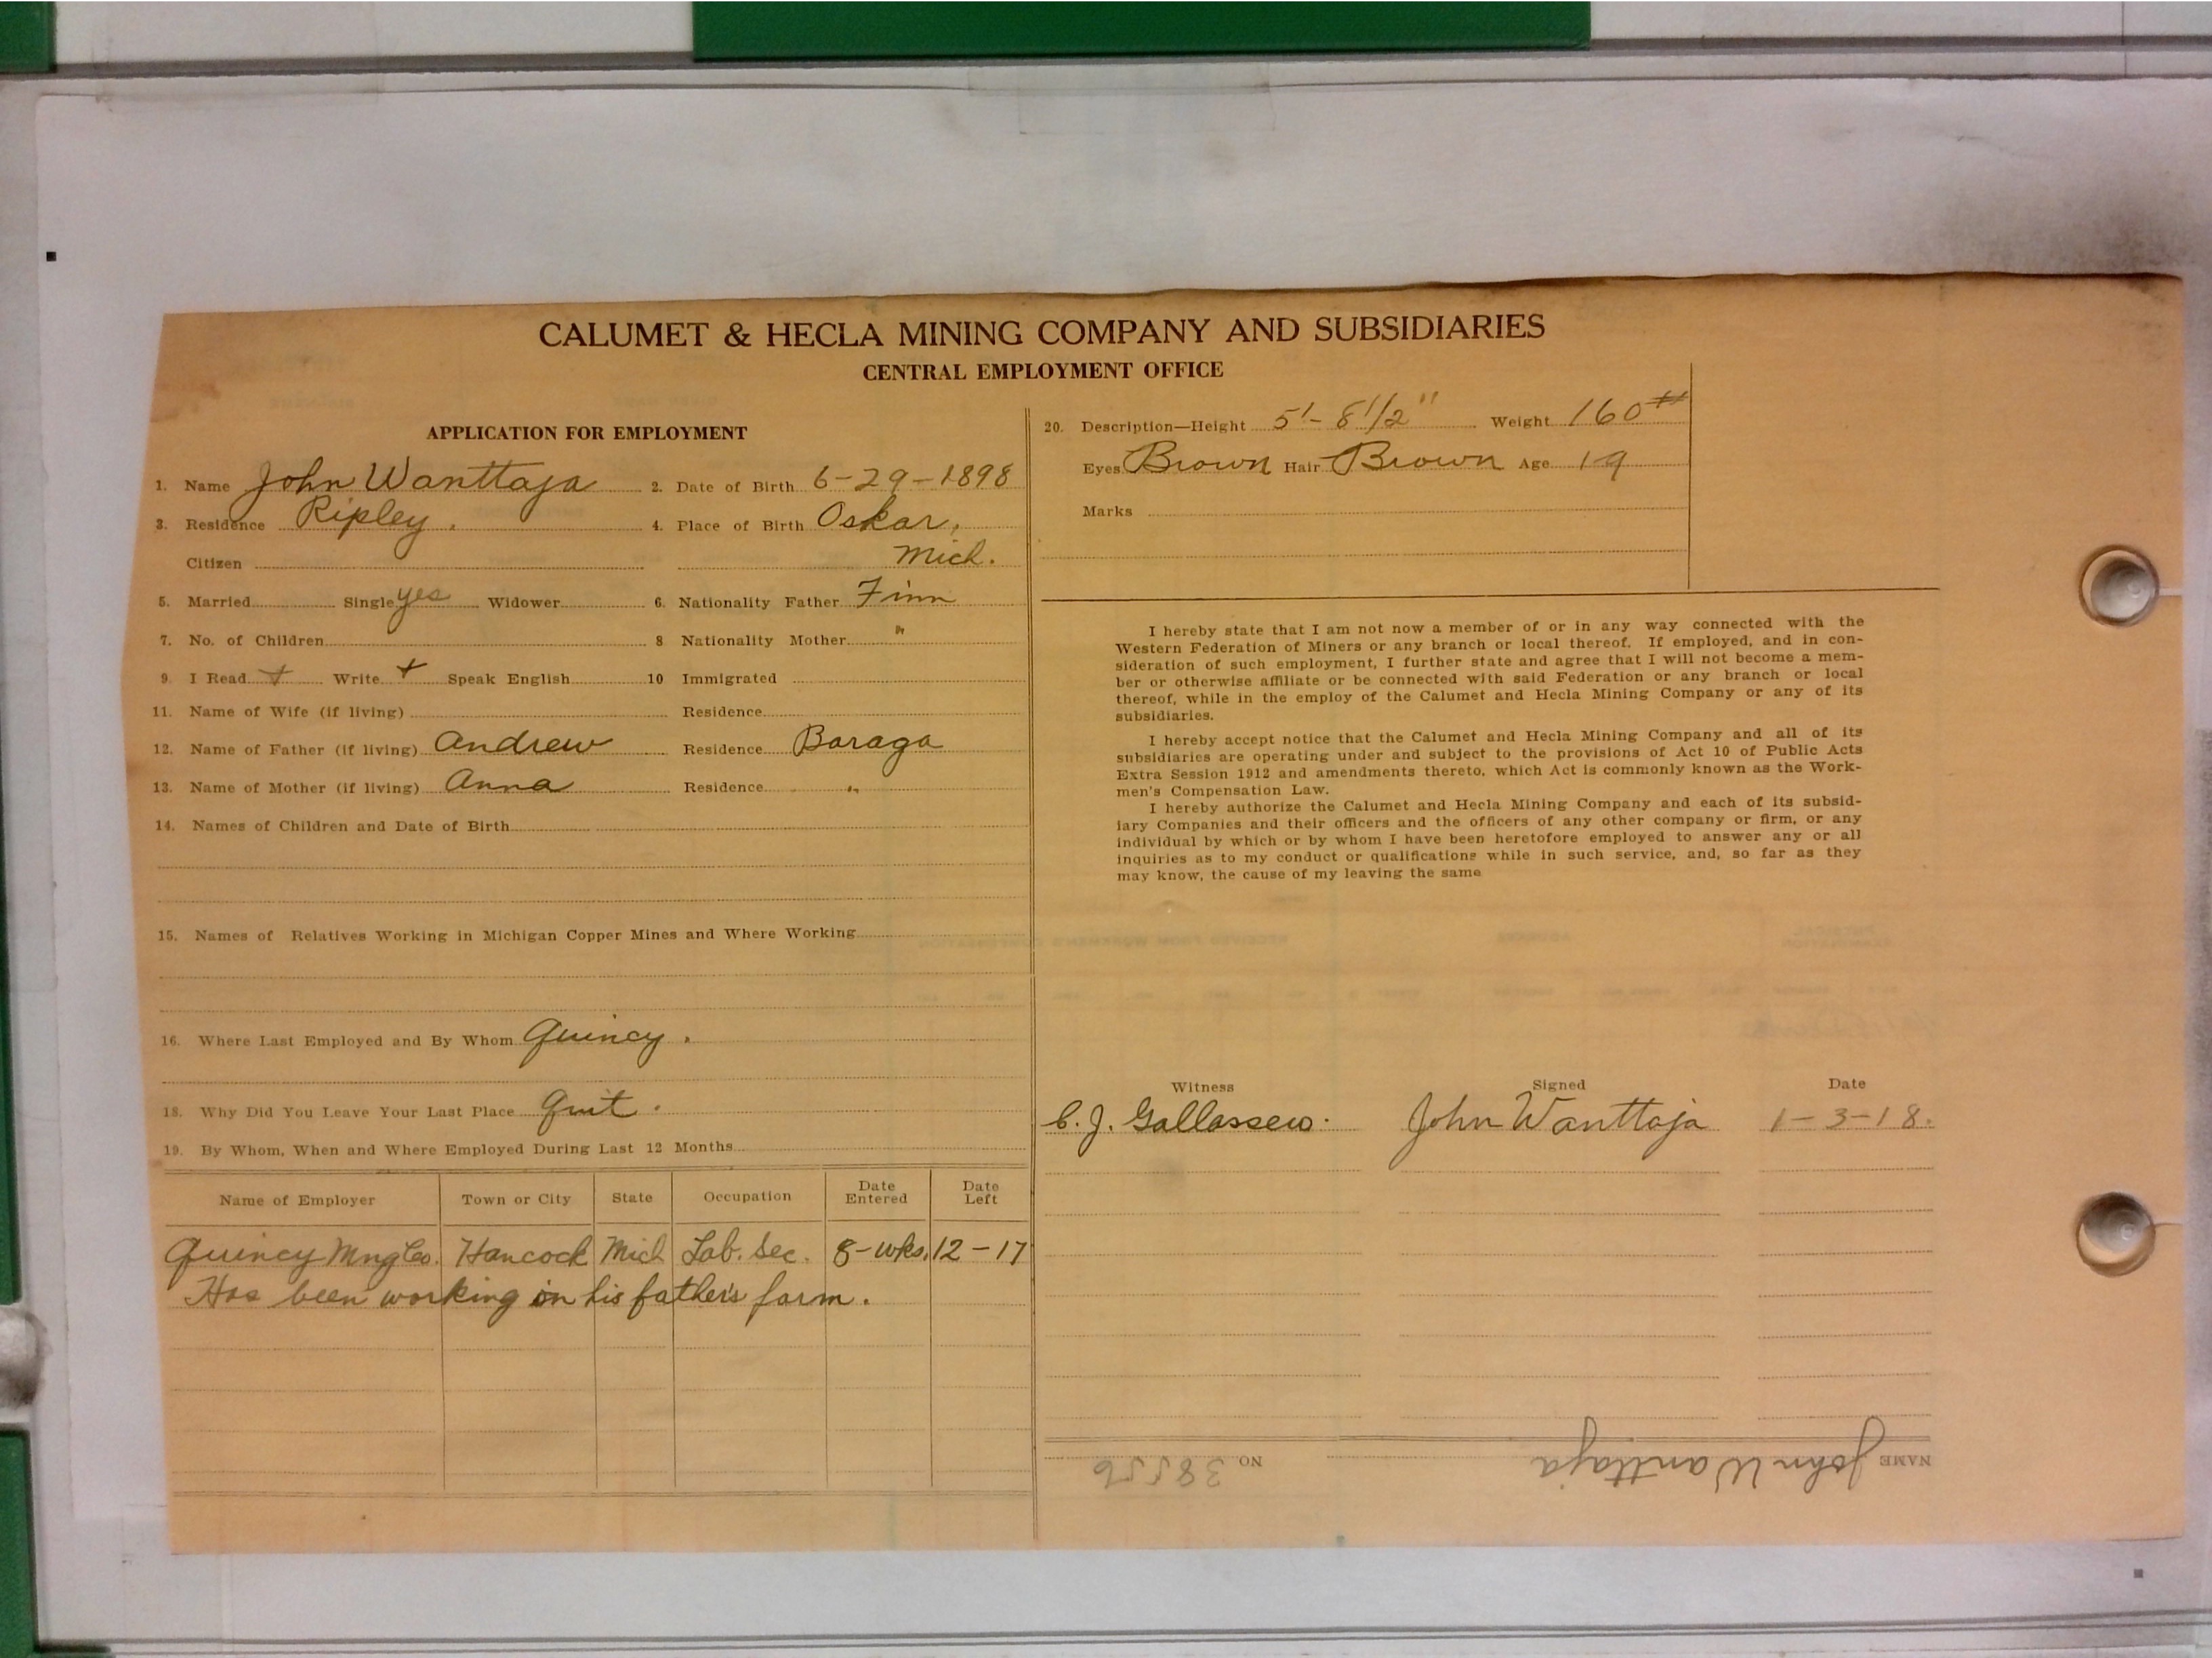 CALUMET & HECLA MINING COMPANY AND SUBSIDIARIES
CENTRAL EMPLOYMENT OFFICE
APPLICATION FOR EMPLOYMENT
1. Name John Wanttaja 2. Date of Birth 6-29-1898
3. Residence Ripley. 4. Place of Birth Oskar,
Citizen Mich.
5. Married Single yes Widower 6. Nationality Father Finn
7. No. of Children 8 Nationality Mother "
9. I Read + Write + Speak English 10 Immigrated
11. Name of Wife (if living) Residence
12. Name of Father (if living) Andrew Residence Baraga
13. Name of Mother (if living) Anna Residence "
14. Names of Children and Date of Birth
15. Names of Relatives Working in Michigan Copper Mines and Where Working
16. Where Last Employed and By Whom Quincy.
18. Why Did You Leave Your Last Place Quit.
19. By Whom, When and Where Employed During Last 12 Months
Name of Employer Town or City State Occupation Date Entered Date Left
Quincy Mng Co. Hancock Mich Lab. Sec. 8-wks. 12-17
Has been working on his father's farm.
20. Description—Height 5'-8 1/2" Weight 160 #
Eyes Brown Hair Brown Age 19
Marks
I hereby state that I am not now a member of or in any way connected with the
Western Federation of Miners or any branch or local thereof. If employed, and in con-
sideration of such employment, I further state and agree that I will not become a mem-
ber or otherwise affiliate or be connected with said Federation or any branch or local
thereof, while in the employ of the Calumet and Hecla Mining Company or any of its
subsidiaries.
I hereby accept notice that the Calumet and Hecla Mining Company and all of its
subsidiaries are operating under and subject to the provisions of Act 10 of Public Acts
Extra Session 1912 and amendments thereto, which Act is commonly known as the Work-
men's Compensation Law.
I hereby authorize the Calumet and Hecla Mining Company and each of its subsid-
iary Companies and their officers and the officers of any other company or firm, or any
individual by which or by whom I have been heretofore employed to answer any or all
inquiries as to my conduct or qualifications while in such service, and, so far as they
may know, the cause of my leaving the same
Witness Signed Date
C. J. John Wanttaja 1-3-18.
NAME John Wanttaja NO. 38556